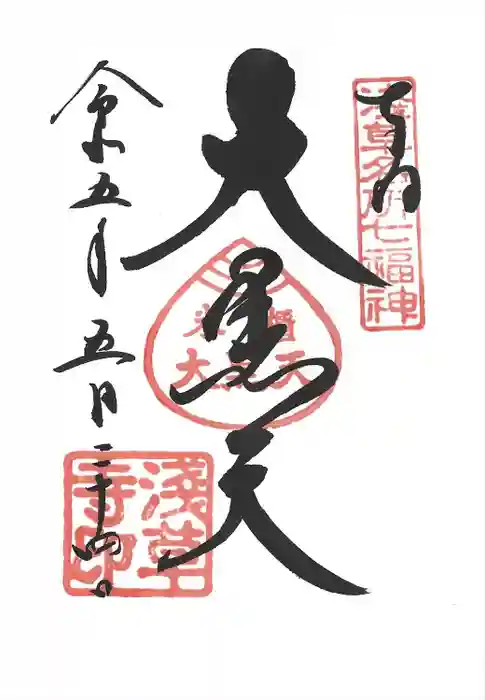 奉拝
浅草名所七福神
大黒天
令和五年五月二十四日
淺草寺印